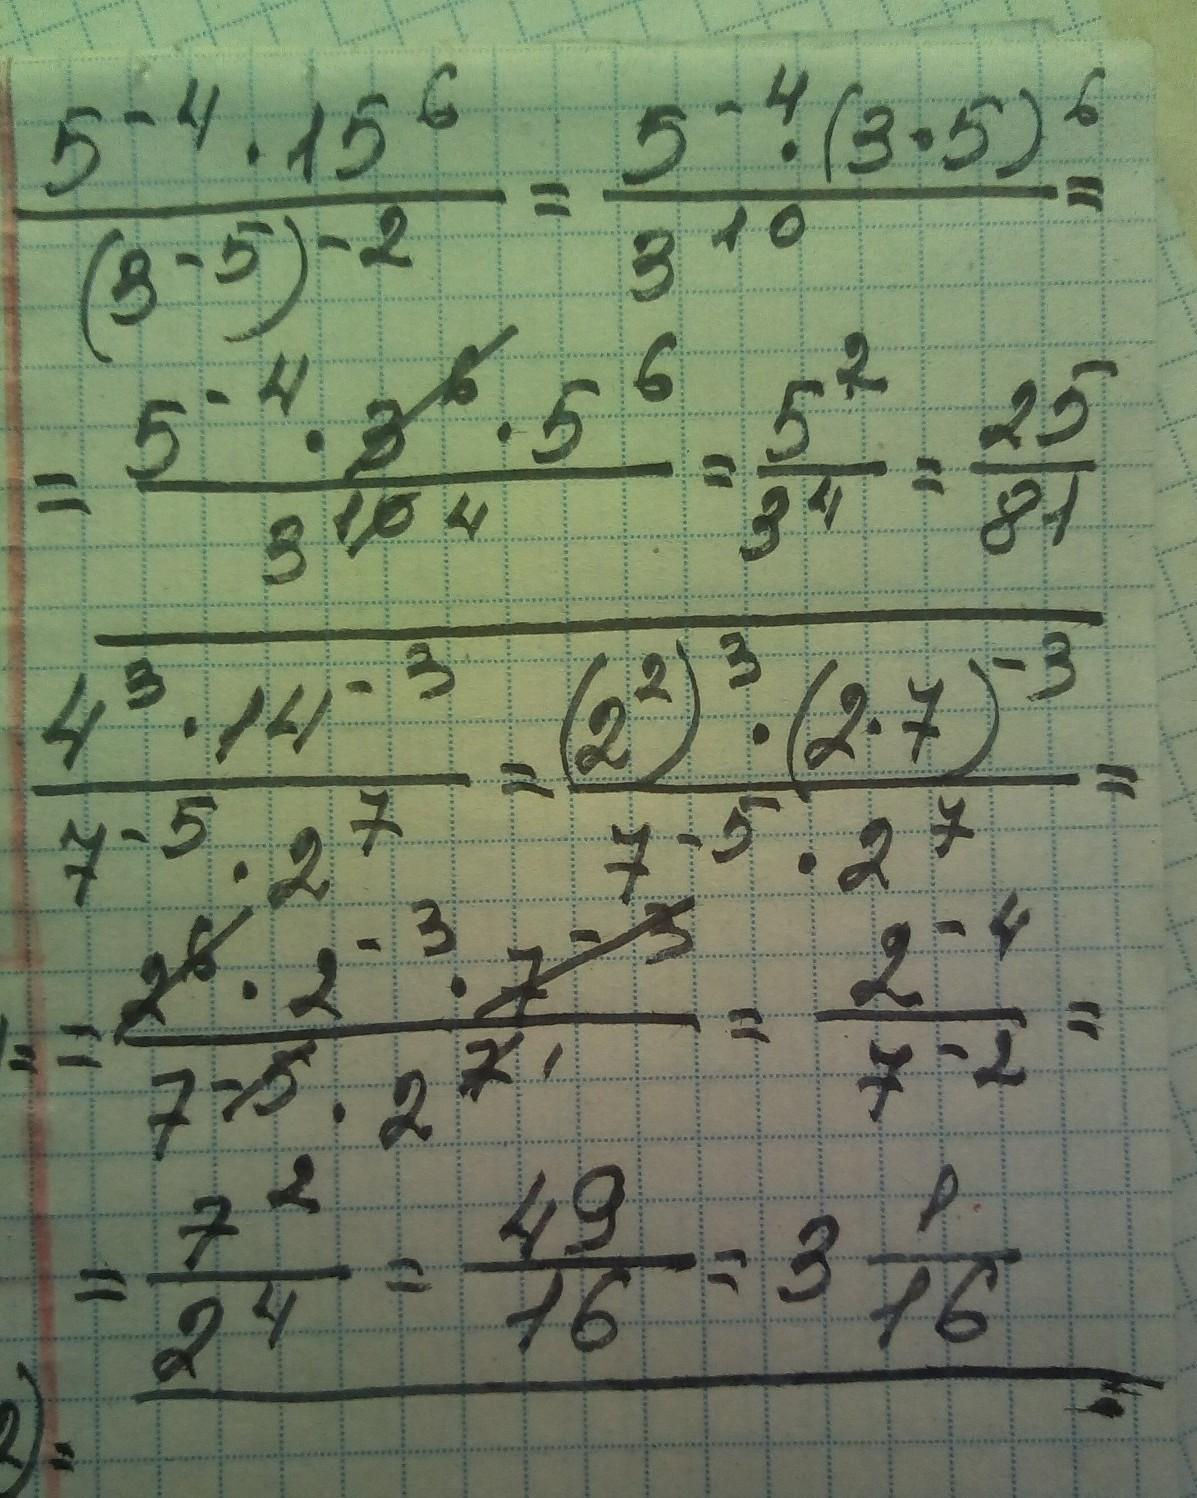 5⁻⁴ · 15⁶ / (3⁻⁵)⁻² = 5⁻⁴ · (3 · 5)⁶ / 3¹⁰ =
= 5⁻⁴ · 3⁶ · 5⁶ / 3¹⁰ ⁴ = 5² / 3⁴ = 25 / 81
4³ · 14⁻³ / 7⁻⁵ · 2⁷ = (2²)³ · (2 · 7)⁻³ / 7⁻⁵ · 2⁷ =
= 2⁶ · 2⁻³ · 7⁻³ / 7⁻⁵ · 2⁷ ¹ = 2⁻⁴ / 7⁻² =
= 7² / 2⁴ = 49 / 16 = 3 1/16
2)